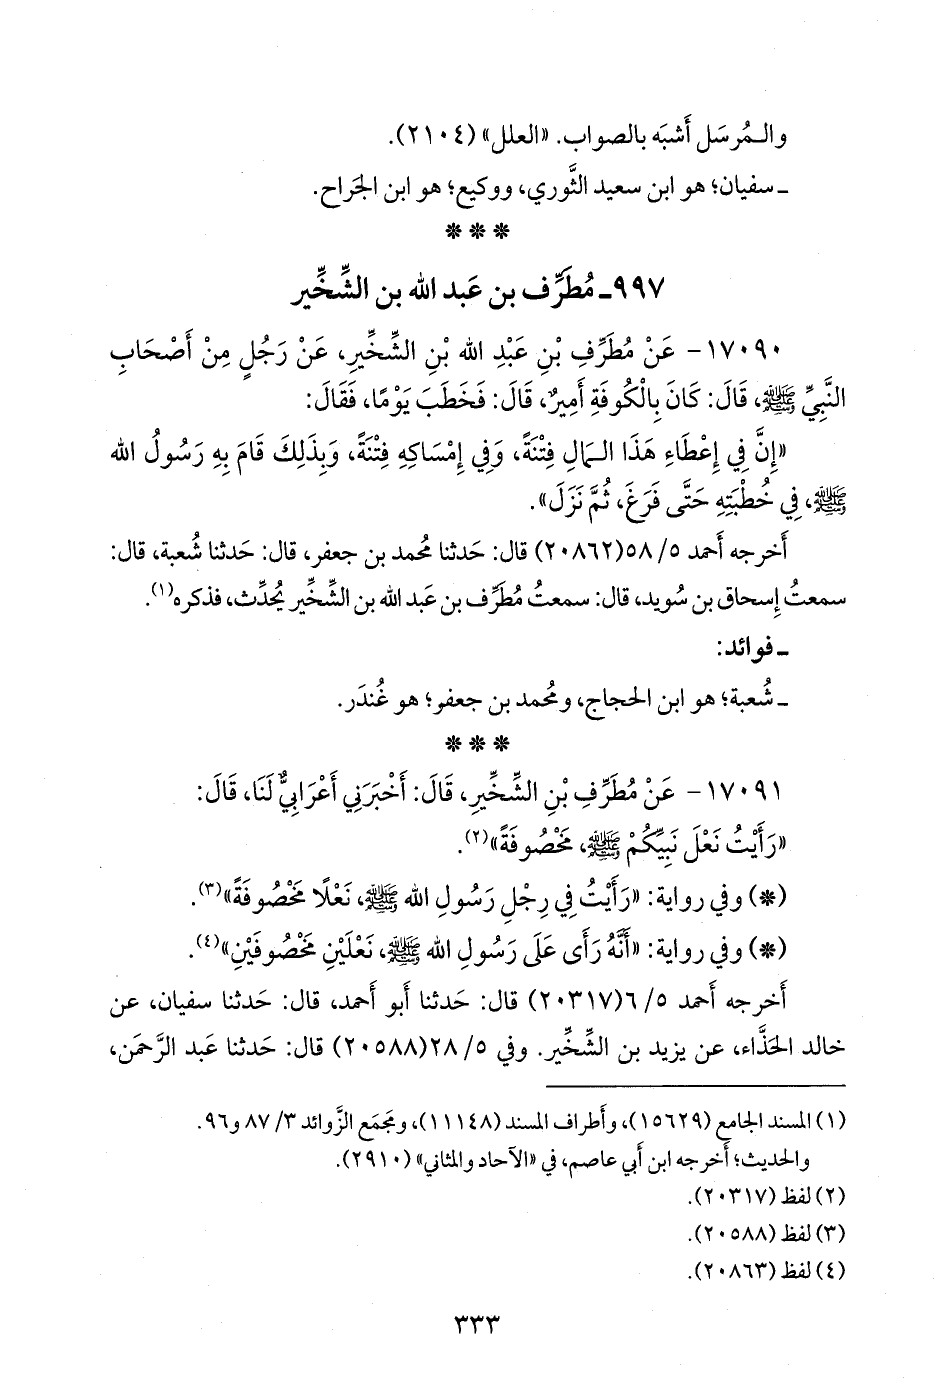 والـمُرسَل أَشبَه بالصواب. «العلل» (٢١٠٤).
ـ سفيان؛ هو ابن سعيد الثَّوري، ووكيع؛ هو ابن الجَراح.
* * *
٩٩٧ـ مُطَرِّف بن عَبد الله بن الشِّخِّير
١٧٠٩٠- عَنْ مُطَرِّفِ بْنِ عَبْدِ الله بْنِ الشِّخِّيرِ، عَنْ رَجُلٍ مِنْ أَصْحَابِ
النَّبِيِّ ﷺ، قَالَ: كَانَ بِالْكُوفَةِ أَمِيرٌ، قَالَ: فَخَطَبَ يَوْمًا، فَقَالَ:
«إِنَّ فِي إِعْطَاءِ هَذَا الـمَالِ فِتْنَةً، وَفِي إِمْسَاكِهِ فِتْنَةً، وَبِذَلِكَ قَامَ بِهِ رَسُولُ الله
ﷺ، فِي خُطْبَتِهِ حَتَّى فَرَغَ، ثُمَّ نَزَلَ».
أَخرجه أَحمد ٥/ ٥٨(٢٠٨٦٢) قال: حَدثنا مُحمد بن جعفر، قال: حَدثنا شُعبة، قال:
سمعتُ إِسحاق بن سُويد، قال: سمعتُ مُطَرِّف بن عَبد الله بن الشِّخِّير يُحدِّث، فذكره(١).
ـ فوائد:
ـ شُعبة؛ هو ابن الحجاج، ومُحمد بن جعفر؛ هو غُندَر.
* * *
١٧٠٩١- عَنْ مُطَرِّفِ بْنِ الشِّخِّيرِ، قَالَ: أَخْبَرَنِي أَعْرَابِيٌّ لَنَا، قَالَ:
«رَأَيْتُ نَعْلَ نَبِيِّكُمْ ﷺ، مَخْصُوفَةً»(٢).
(*) وفي رواية: «رَأَيْتُ فِي رِجْلِ رَسُولِ الله ﷺ، نَعْلًا مَخْصُوفَةً»(٣).
(*) وفي رواية: «أَنَّهُ رَأَى عَلَى رَسُولِ الله ﷺ، نَعْلَيْنِ مَخْصُوفَيْنِ»(٤).
أَخرجه أَحمد ٥/ ٦(٢٠٣١٧) قال: حَدثنا أَبو أَحمد، قال: حَدثنا سفيان، عن
خالد الحَذَّاء، عن يزيد بن الشِّخِّير. وفي ٥/ ٢٨(٢٠٥٨٨) قال: حَدثنا عَبد الرَّحمَن،
(١) المسند الجامع (١٥٦٢٩)، وأَطراف المسند (١١١٤٨)، ومَجمَع الزَّوائد ٣/ ٨٧ و٩٦.
والحديث؛ أَخرجه ابن أَبي عاصم، في «الآحاد والمثاني» (٢٩١٠).
(٢) لفظ (٢٠٣١٧).
(٣) لفظ (٢٠٥٨٨).
(٤) لفظ (٢٠٨٦٣).
٣٣٣